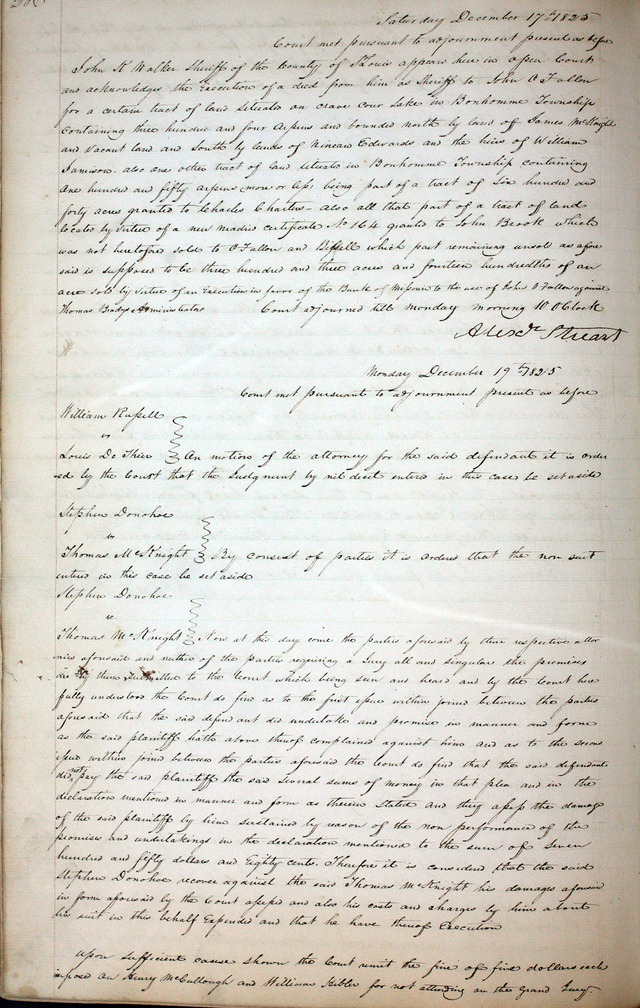 Saturday December 17th 1825
Court met pursuant to adjournment present as before
John K Walker Sheriff of the County of St Louis appears here in open Court
and acknowledges the Execution of a deed from him as Sheriff to John O Fallon
for a certain tract of land situated on creve cour Lake in Bonhomme Township
Containing three hundred and four Arpens and bounded north by land of James McKnight
and vacant land and South by lands of Ninean Edwards and the heirs of William
Jamison. also one other tract of land situate in Bonhomme Township containing
One hundred and fifty arpens more or less being part of a tract of Six hundred and
forty acres granted to Charles Chartier. Also all that part of a tract of land
located by virtue of a new madrid certificate No 164 granted to John Brook which
was not heretofore sold to O Fallon and Bissell which part remaining unsold as afore
said is supposed to be three hundred and three acres and fourteen hundredths of an
acre sold by virtue of an Execution in favor of the Bank of Missouri to the use of John O Fallon against
Thomas Bradys Administrator Court adjourned till Monday morning 10 O Clock
Alexdr Stuart
Monday December 19th 1825
Court met pursuant to adjournment present as before
William Russell
vs
Louis De Thier On motion of the attorney for the said defendant it is order
ed by the Court that the Judgment by nil dicit entered in this case be set aside
Stephen Donohoe
vs
Thomas McKnight By consent of parties it is ordered that the non suit
entered in this case be set aside
Stephen Donohoe
vs
Thomas McKnight Now at this day come the parties aforesaid by their respective attor
nies aforesaid and neither of the parties requiring a Jury all and singular the premises
are by them submitted to the Court which being seen and heard and by the Court here
fully understood the Court do find as to the first issue within joined between the parties
aforesaid that the said defendant did undertake and promise in manner and form
as the said plaintiff hath above thereof complained against him and as to the second
issue within joined between the parties aforesaid the Court do find that the said defendant
did not pay the said plaintiff the said several sums of money in that plea and in the
declaration mentioned in manner and form as therein Stated and they assess the damage
of the said plaintiff by him sustained by reason of the non performance of the
promises and undertakings in the declaration mentioned to the sum of Seven
hundred and fifty dollars and Eighty cents. Therefore it is considered that the said
Stephen Donohoe recover against the said Thomas McKnight his damages aforesaid
in form aforesaid by the Court assessed and also his costs and charges by him about
his suit in this behalf Expended and that he have thereof Execution
Upon sufficient cause shown the Court remit the fine of five dollars each
imposed on Henry McCullough and William Hibler for not attending on the Grand Jury.